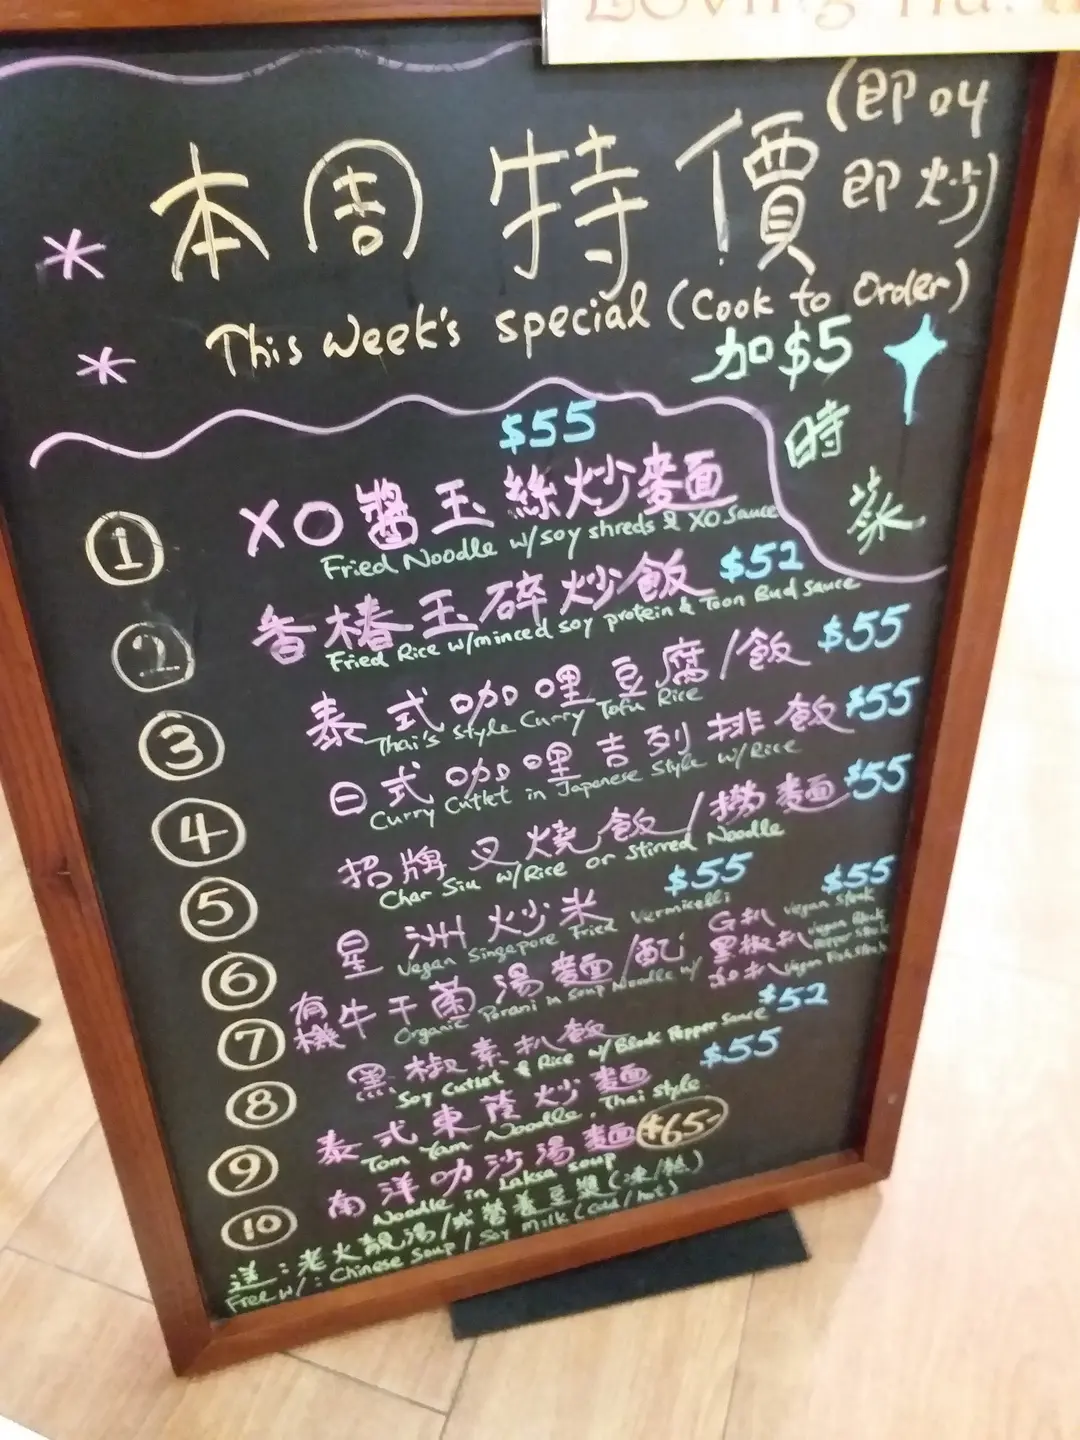 Loving
(即叫
即炒)
* 本周特價
* This Week's special (Cook to Order)
加$5
時
菜
$55
① XO醬玉絲炒麵
Fried Noodle w/soy shreds & XO Sauce
② 香椿玉碎炒飯 $52
Fried Rice w/minced soy protein & Toon Bud sauce
③ 泰式咖哩豆腐/飯 $55
Thai's Style Curry Tofu Rice
④ 日式咖哩吉列排飯 $55
Curry Cutlet in Japanese Style w/Rice
⑤ 招牌叉燒飯/撈麵 $55
Char Siu w/Rice or Stirred Noodle
⑥ 星洲炒米 $55
Vegan Singapore Fried Vermicelli
$55
⑦ 有機牛干菌湯麵/配
Organic Porani in soup Noodle w/
G扒 Vegan Steak
黑椒扒 Vegan Black Pepper Steak
扒 Vegan Fish Steak
⑧ 黑椒素扒飯 $52
Soy Cutlet & Rice w/Black Pepper Sauce
⑨ 泰式東蔭炒麵 $55
Tom Yam Noodle. Thai Style
⑩ 南洋叻沙湯麵 $65-
Noodle in Laksa soup
送:老火靚湯/或營養豆漿(凍/熱)
Free w/: Chinese Soup / Soy Milk (Cold/hot)